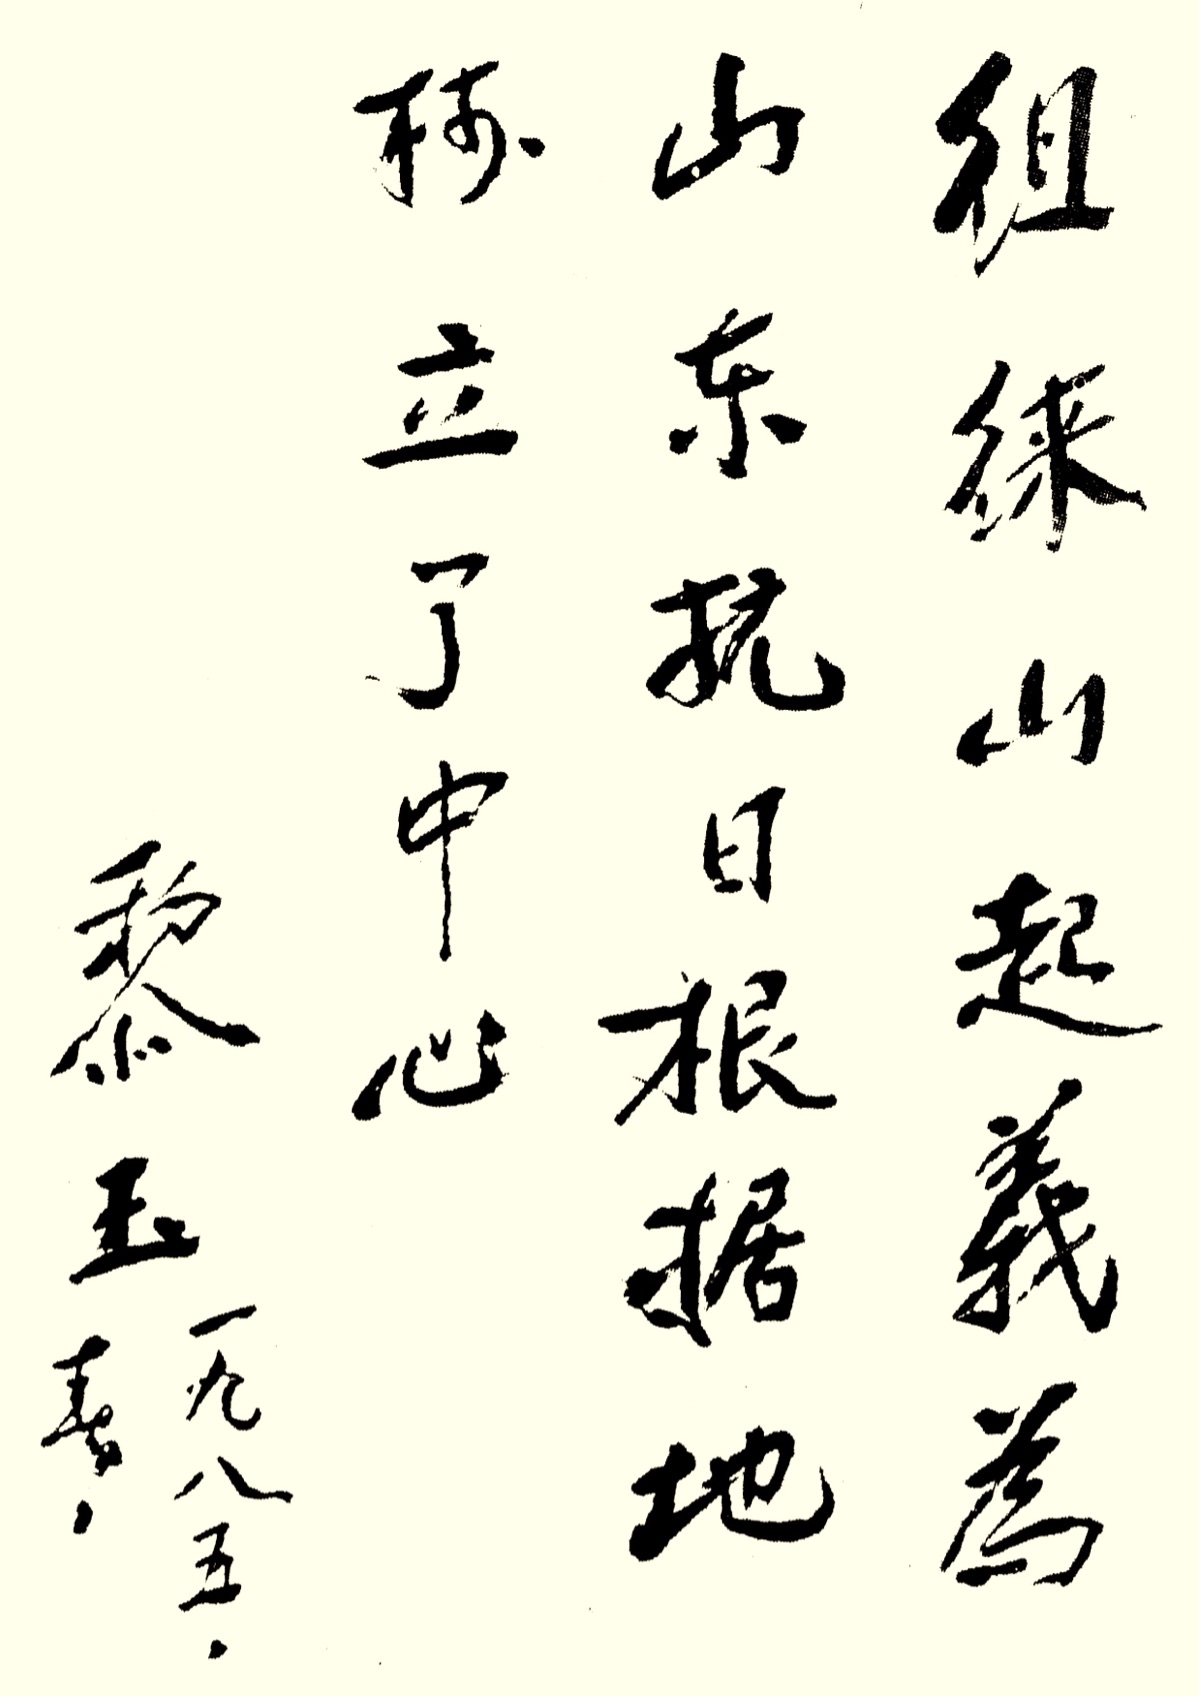 徂徕山起義為
山东抗日根据地
树立了中心
黎玉
一九八五.
春.